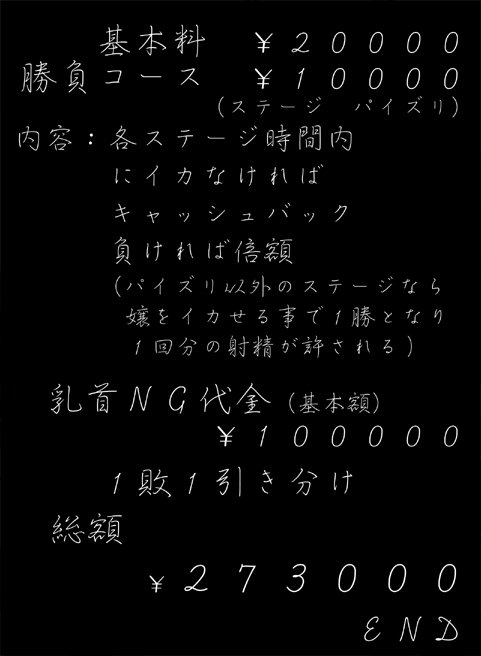 基本料 ￥20000
勝負コース ￥10000
(ステージ パイズリ)
内容：各ステージ時間内
にイカなければ
キャッシュバック
負ければ倍額
(パイズリ以外のステージなら
嬢をイカせる事で1勝となり
1回分の射精が許される)
乳首NG代金(基本額)
￥100000
1敗1引き分け
総額
￥273000
END